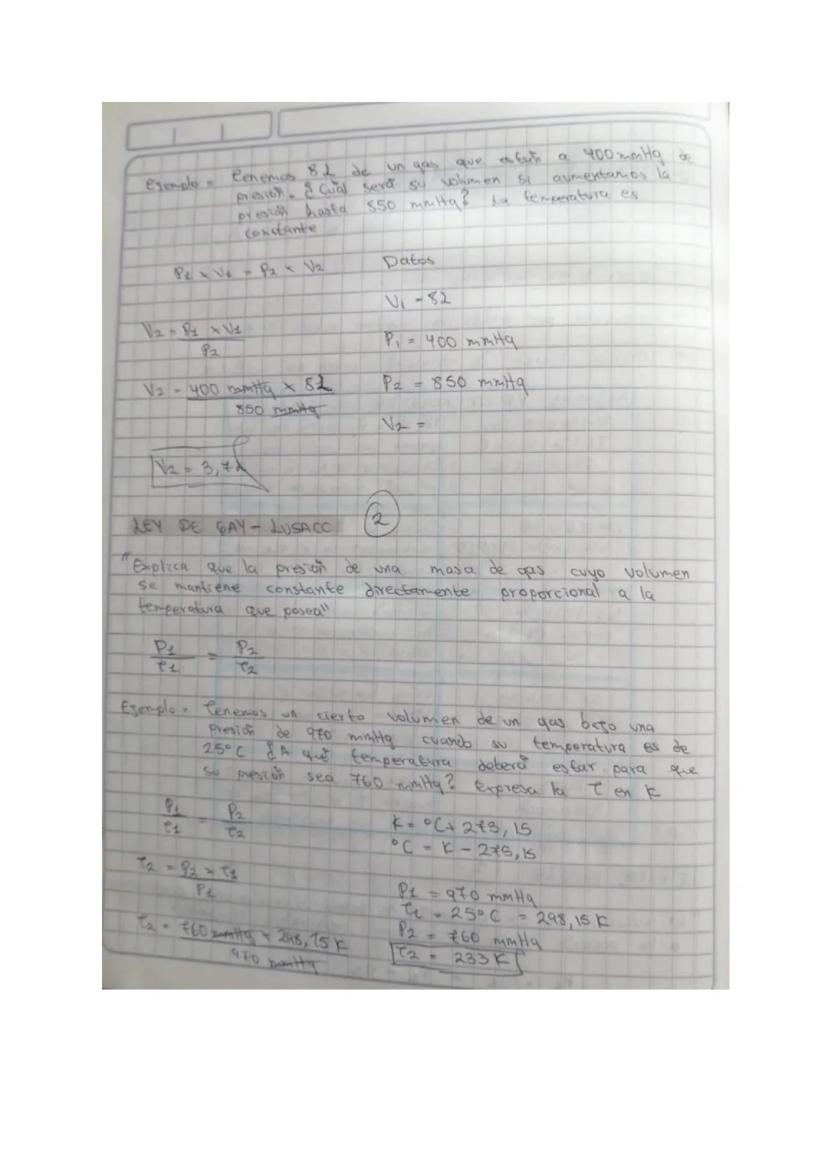 Ejemplo = tenemos 8L de un gas que están a 400 mmHg de
presión. ¿Cuál será su volumen si aumentamos la
presión hasta 850 mmHg? La temperatura es
constante
P1 x V1 = P2 x V2
Datos
V1 = 8L
V2 = P1 x V1
P2
P1 = 400 mmHg
V2 = 400 mmHg x 8L
850 mmHg
P2 = 850 mmHg
V2 =
V2 = 3,7L
LEY DE GAY-LUSACC 2
"Explica que la presión de una masa de gas cuyo volumen
se mantiene constante directamente proporcional a la
temperatura que posea"
P1 = P2
T1 T2
Ejemplo = tenemos un cierto volumen de un gas bajo una
presión de 970 mmHg cuando su temperatura es de
25°C ¿A qué temperatura deberá estar para que
su presión sea 760 mmHg? Expresa la T en K
P1 = P2
T1 T2
K = °C + 273,15
°C = K - 273,15
T2 = P2 x T1
P1
P1 = 970 mmHg
T1 = 25°C = 298,15 K
T2 = 760 mmHg x 298,15 K
970 mmHg
P2 = 760 mmHg
T2 = 233 K